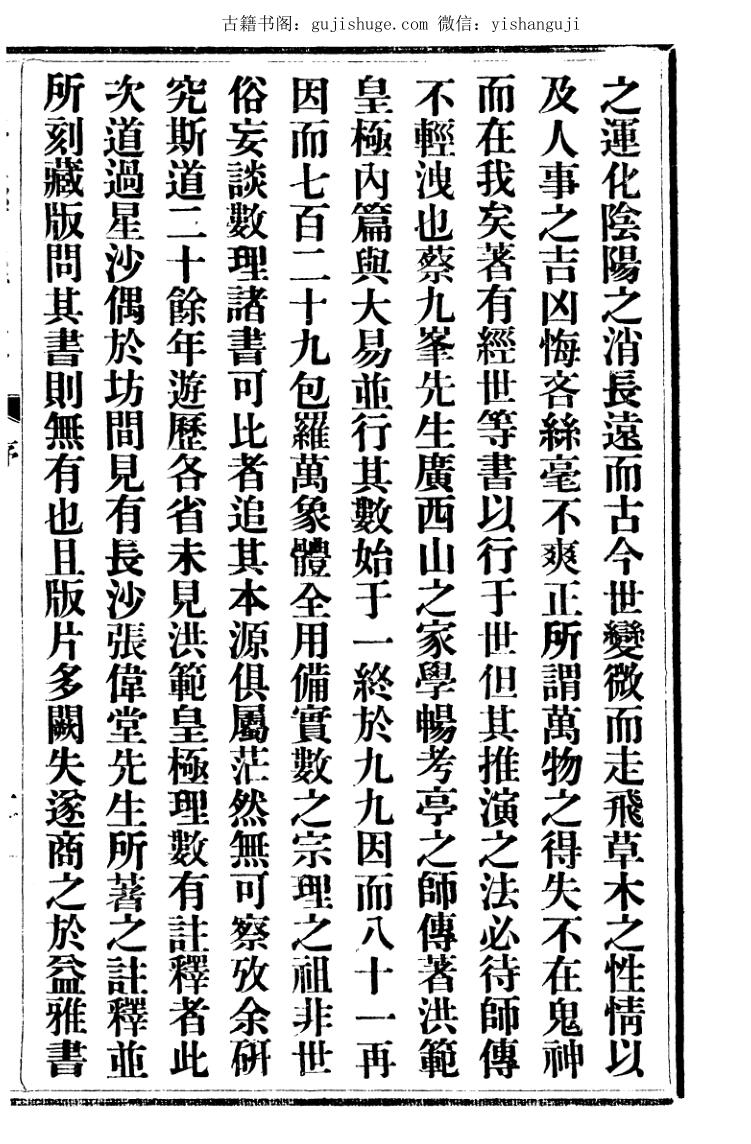 古籍书阁：gujishuge.com 微信：yishanguji
之運化陰陽之消長遠而古今世變微而走飛草木之性情以
及人事之吉凶悔吝絲毫不爽正所謂萬物之得失不在鬼神
而在我矣著有經世等書以行于世但其推演之法必待師傳
不輕洩也蔡九峯先生廣西山之家學暢考亭之師傳著洪範
皇極內篇與大易並行其數始于一終於九九因而八十一再
因而七百二十九包羅萬象體全用備實數之宗理之祖非世
俗妄談數理諸書可比者追其本源俱屬茫然無可察攷余研
究斯道二十餘年遊歷各省未見洪範皇極理數有註釋者此
次道過星沙偶於坊間見有長沙張偉堂先生所著之註釋並
所刻藏版問其書則無有也且版片多闕失遂商之於益雅書
序